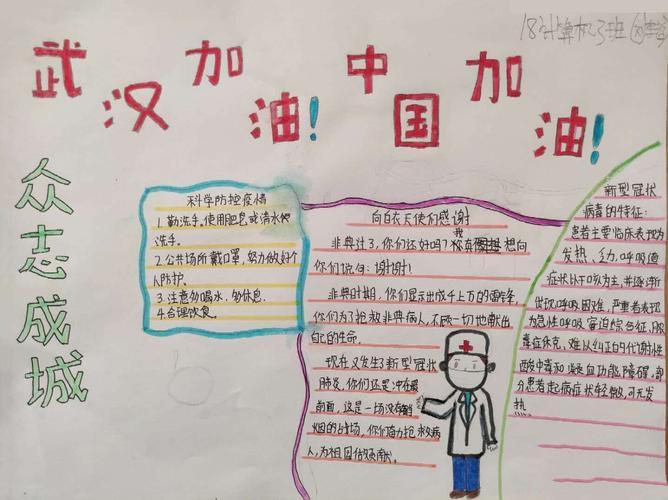 18计算机3班
武汉加油!中国加油!
众志成城
科学防控疫情
1.勤洗手.使用肥皂或清水
洗手。
2.公共场所戴口罩,努力做好个
人防护。
3.注意多喝水,多休息.
4.合理饮食。
向白衣天使们感谢
我
你们还好吗?
想向
你们说句:谢谢!
非典时期,你们显示出成千上万的
你们为了抢救非典病人,不顾一切地献出
自己的生命。
现在又发生了新型冠状
肺炎,你们还是冲在最
前面,这是一场没有硝
烟的战场,你们奋力抢救病
人,为祖国做贡献。
新型冠状
病毒的特征:
患者主要临床表现为
发热、乏力,呼吸道
症状以干咳为主,并逐渐
出现呼吸困难,严重者表现
为急性呼吸窘迫综合征,脓
毒症休克,难以纠正的代谢性
酸中毒和凝血功能障碍,部
分患者起病症状轻微,可无发
热.